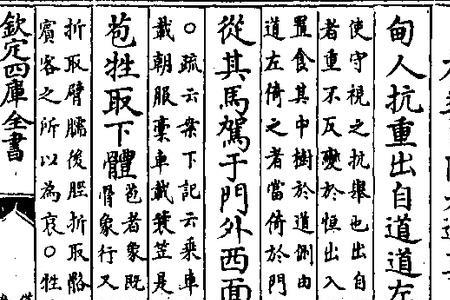 甸人抗重出自道道左
使守視之抗舉也出自
者重不反變於恒出入
置食其中樹於道側由
道左倚之者當倚於門
從其馬駕于門外西面
○疏云案下記云乘車
載朝服稾車載簑笠是
苞牲取下體
苞者象既
骨象行又
折取臂臑後脛折取骼
賓客之所以為哀○牲
欽定四庫全書